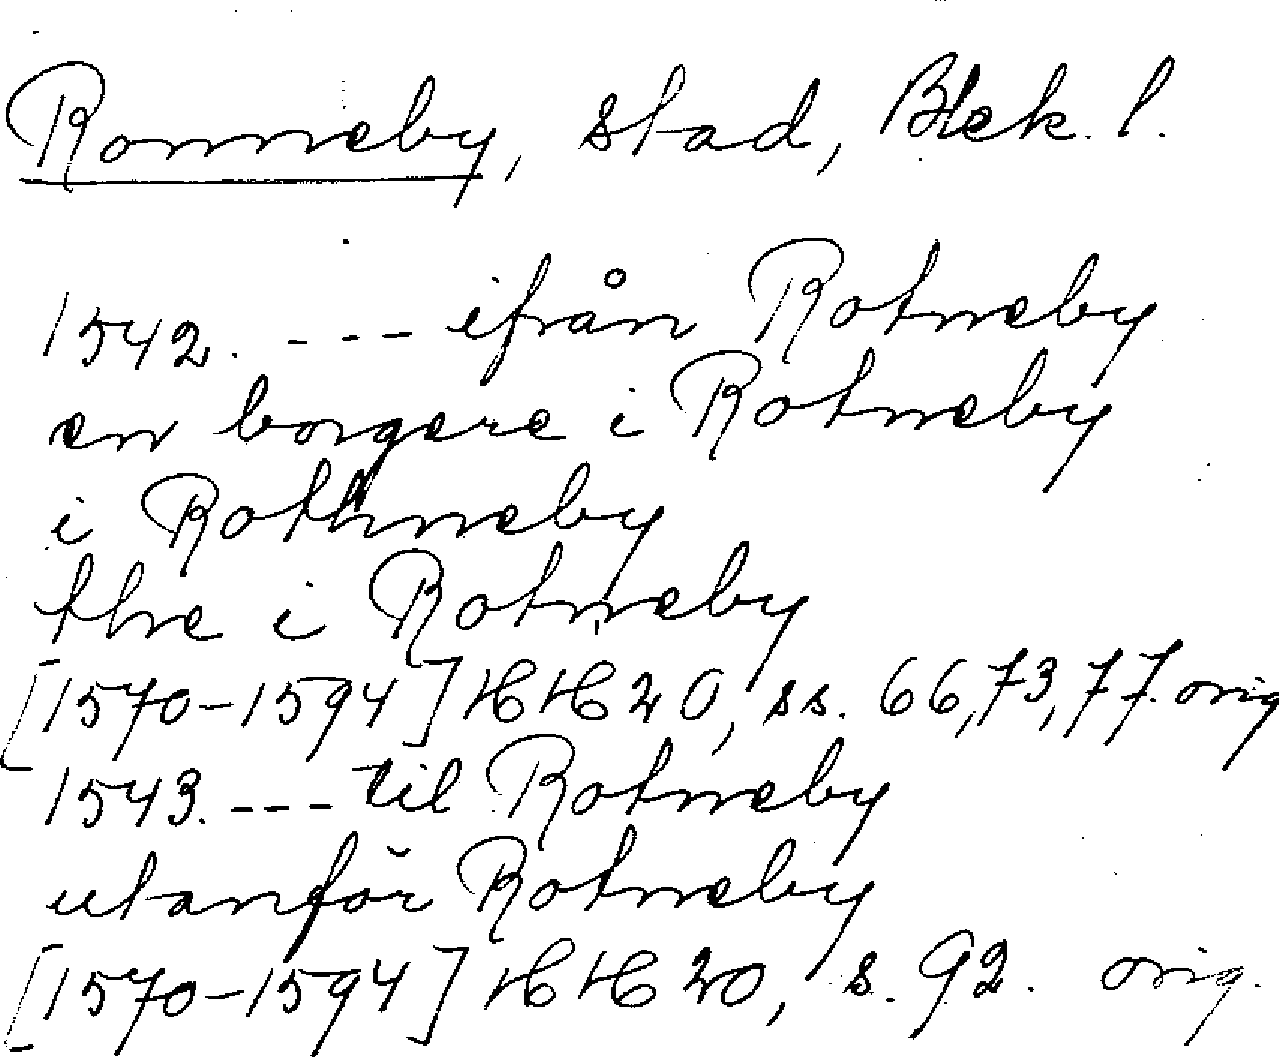 Ronneby, stad, Blek. l.
1542. --- ifrån Rotneby
en borgere i Rotneby
i Rothneby
thre i Rotneby
[1570-1594] HH 20, ss. 66, 73, 77. orig
1543. --- til Rotneby
utanför Rotneby
[1570-1594] HH 20, s. 92. orig.